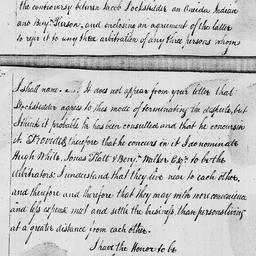 the controversy between Jacob Dockstadder an Oneida Indian
and Benj. Pierson, and enclosing an agreement of the latter
to refer it to any three arbitration of any three persons whom
I shall name. It does not appear from your letter that
Dockstadder agrees to this mode of terminating the dispute, but
I think it probable he has been consulted and that he concurs in
it. Provided therefore that he concurs in it I do nominate
Hugh White, Jonas Platt & Benj. Walker Esqrs. to be the
Arbitrators. I understand that they live near to each other,
and therefore and therefore that they may with more convenience
and less expense meet and settle the business, than persons living
at a greater distance from each other.
I have the Honor to be